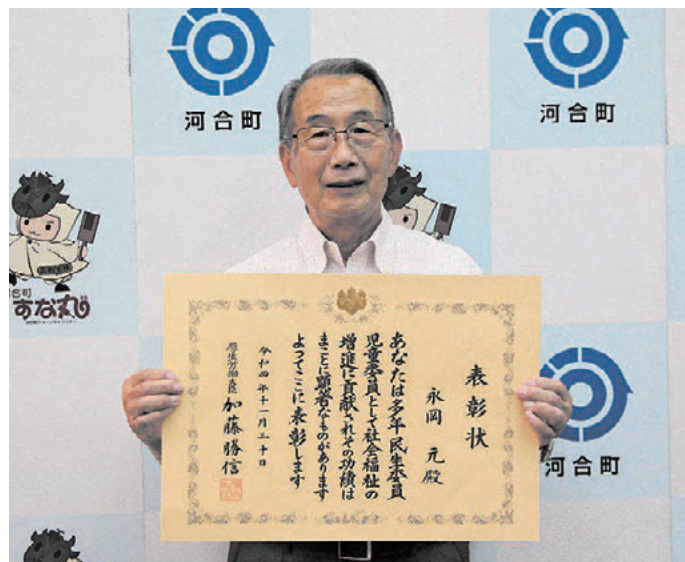 河合町
河合町
合町
すな丸
表彰状
永岡元殿
あなたは多年民生委員
児童委員として社会福祉の
増進に貢献されその功績は
まことに顕著なものがあります
よってここに表彰します
令和四年十一月三十日
厚生労働大臣 加藤勝信
河合町